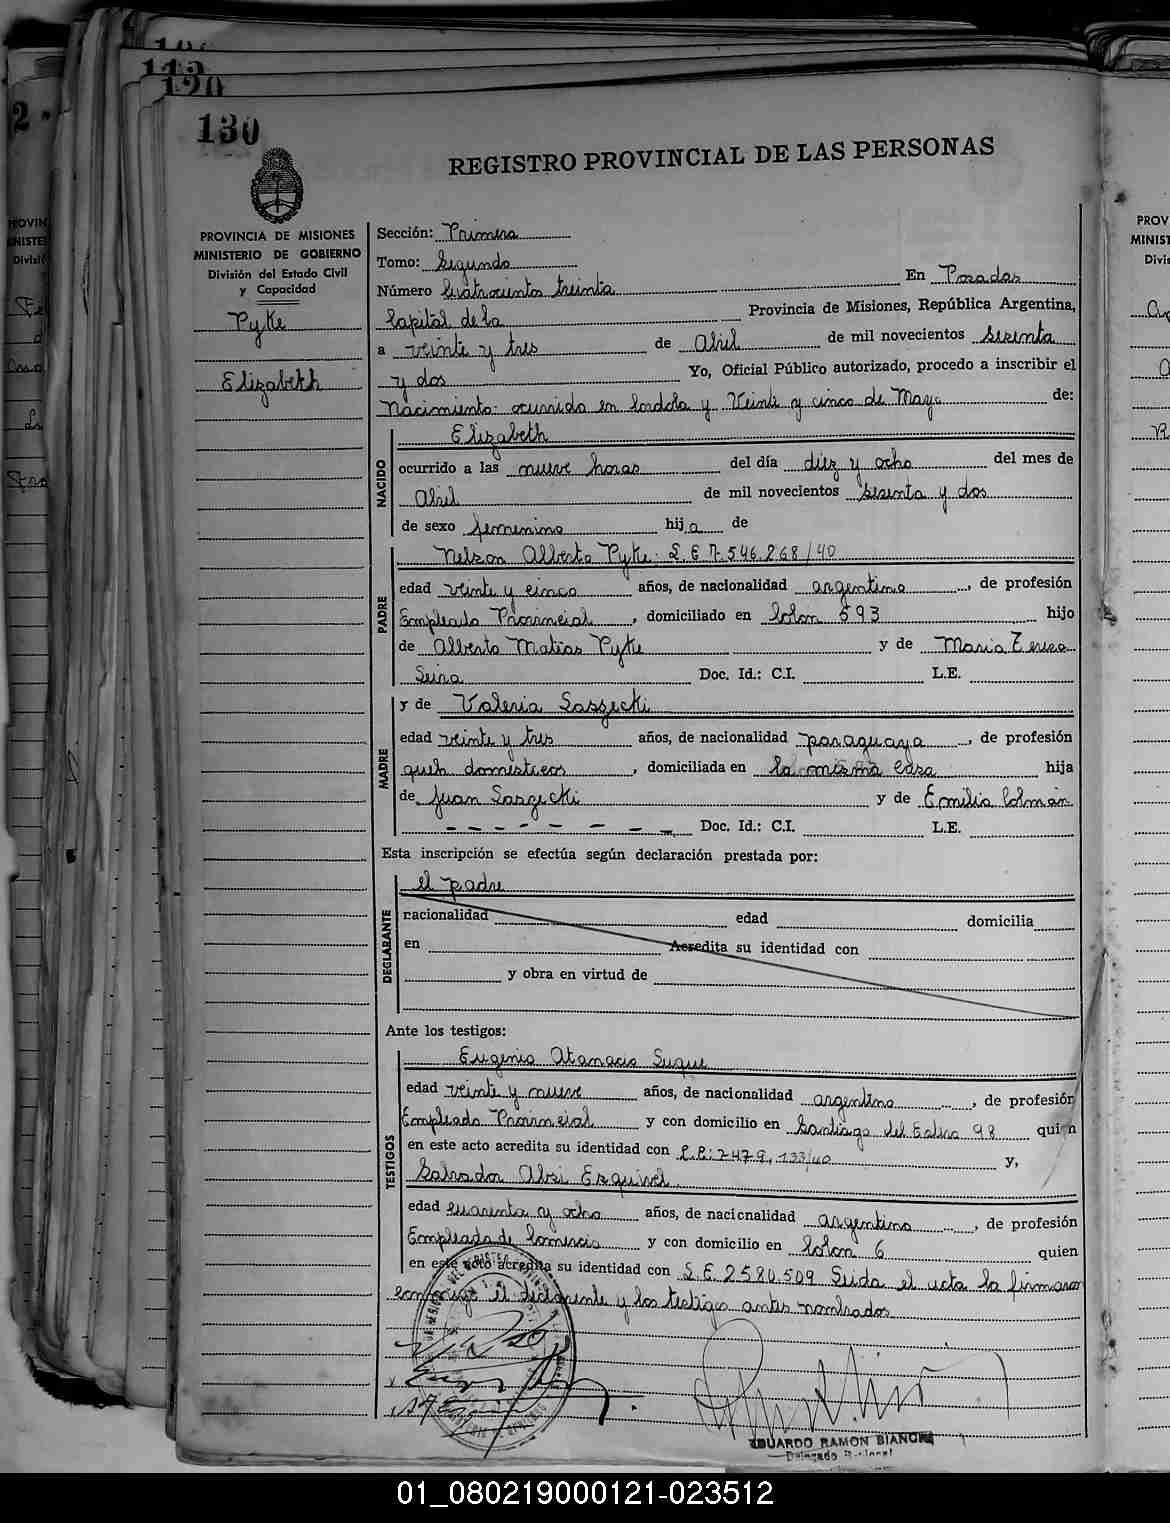 130
REGISTRO PROVINCIAL DE LAS PERSONAS
PROVINCIA DE MISIONES
MINISTERIO DE GOBIERNO
División del Estado Civil
y Capacidad
Pyke
Elizabeth
Sección: Primera
Tomo: Segundo
Número Cuatrocientos treinta En Posadas
Capital de la Provincia de Misiones, República Argentina,
a veinte y tres de Abril de mil novecientos sesenta
y dos Yo, Oficial Público autorizado, procedo a inscribir el
Nacimiento: ocurrido en Cordoba y Veinte y cinco de Mayo de:
NACIDO
Elizabeth
ocurrido a las nueve horas del día diez y ocho del mes de
Abril de mil novecientos sesenta y dos
de sexo femenino hija de
PADRE
Nelson Alberto Pyke: L.E 7.546.268/40
edad veinte y cinco años, de nacionalidad argentino, de profesión
Empleado Provincial, domiciliado en Colon 593 hijo
de Alberto Matias Pyke y de Maria Teresa
Doc. Id.: C.I. L.E.
MADRE
y de Valeria Saszecki
edad veinte y tres años, de nacionalidad paraguaya, de profesión
queh domesticos, domiciliada en la misma casa hija
de Juan Saszecki y de Emilia Colmán
Doc. Id.: C.I. L.E.
Esta inscripción se efectúa según declaración prestada por:
DECLARANTE
el padre
nacionalidad edad domicilia
en Acredita su identidad con
y obra en virtud de
Ante los testigos:
TESTIGOS
Eugenio Atanacio Suque
edad veinte y nueve años, de nacionalidad argentino, de profesión
Empleado Provincial y con domicilio en Santiago del Estero 98 quien
en este acto acredita su identidad con 2479.133/40 y,
Salvador Esquivel
edad cuarenta y ocho años, de nacionalidad argentino, de profesión
Empleado de Comercio y con domicilio en Colon 6 quien
en este acto acredita su identidad con L.E. 2580.509 Leida el acta la firmaron
conmigo el declarante y los testigos antes nombrados
EDUARDO RAMON BIANCHI
Delegado
01_080219000121-023512